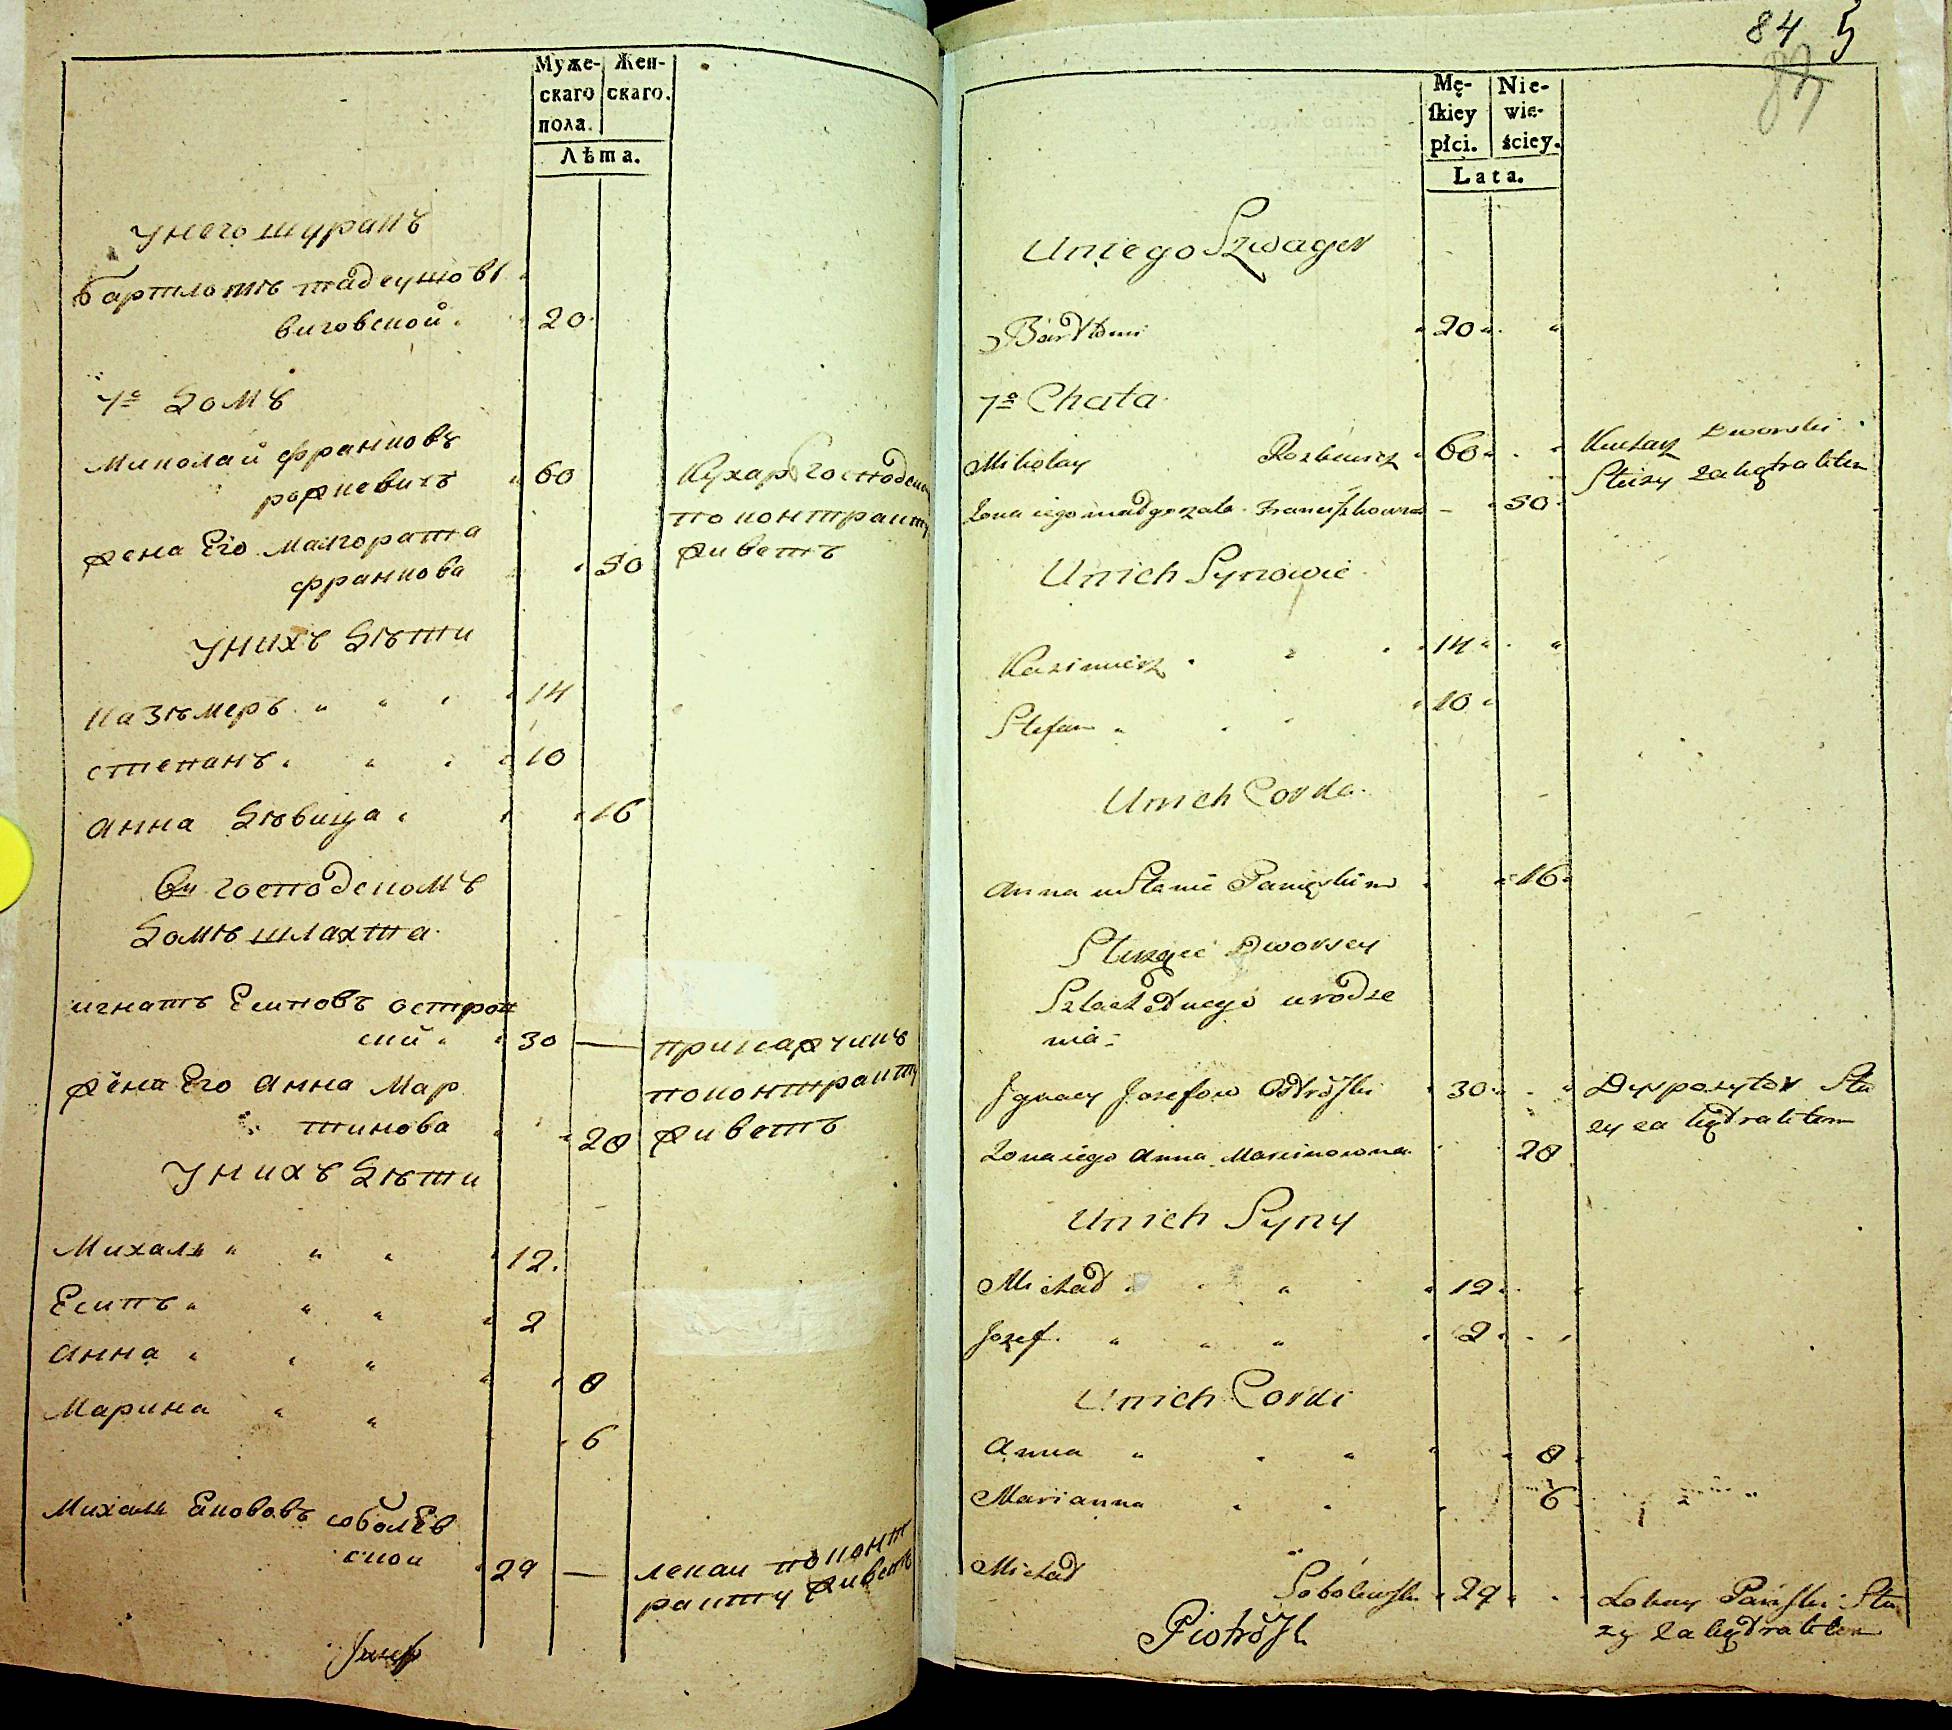 Муже-
скаго
пола.
Жен-
скаго.
Лѣта.
У него шуринъ
Бартломѣ тадеушовъ
виговской. 20
7º Домъ
Миколай франковъ
рожкевичъ 60
Кухаръ Господской
по контракту
живетъ
жена Его Малгората
франкова 50
У нихъ Дѣти
Казѣмеръ 14
степанъ 10
анна Дѣвица 16
Въ господскомъ
Домѣ шляхта
игнатъ Есиповъ остров
ский 30 —
приказчикъ
по контракту
живетъ
жена Его анна Мар
тинова 28
У нихъ Дѣти
Михалъ 12
Есипъ 2
анна 8
Марина 6
Михалъ Яковавъ соболЕв
ской 29 —
лекаи по конт
ракту живетъ
84 5
87
Mę-
ſkiey
płci.
Nie-
wie-
ściey.
Lata.
U niego Szwagier
Bardłomi 20
7º Chata
Mikołay Rożkiewicz 60
Kucharz Dworski
Służy za kątraktem
Żona iego małgorzata Franciſzkowna 50
U nich Synowie
Kazimierz 14
Stefan 10
U nich Corka
Anna w Stanie Panięskim 16
Służące Dworscy
Szlachetnego urodze
nia
Ignacy Jozefow Ostroſki 30
Dysponytor Słu
zy za kątraktem
Żona iego Anna Marcinowna 28
U nich Syny
Michał 12
Jozef 2
U nich Corki
Anna 8
Marianna 6
Michał Sobolewſki 29
Lokay Pańſki Słu
zy za kątraktem
Piotroſk